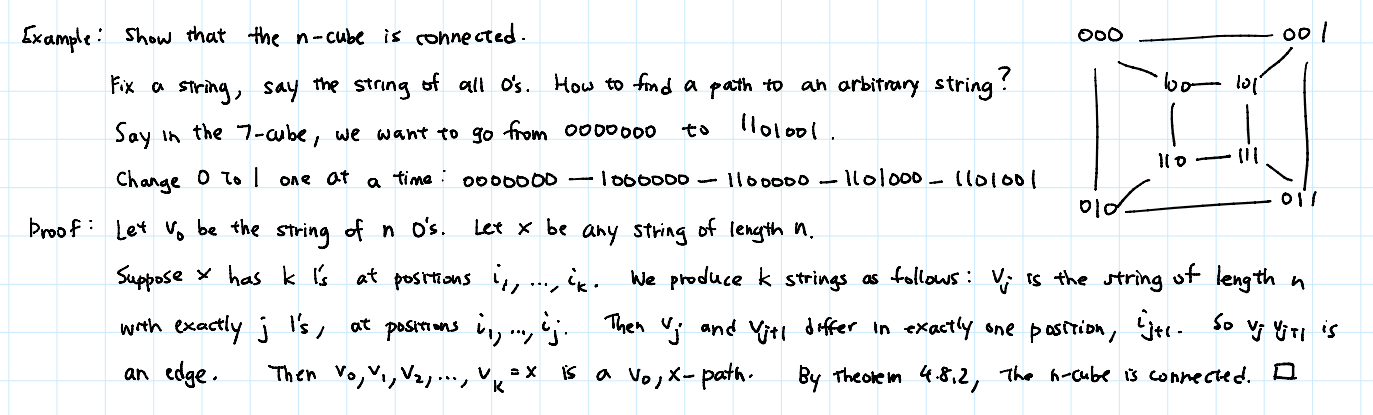 Example: Show that the n-cube is connected.
Fix a string, say the string of all 0's. How to find a path to an arbitrary string?
Say in the 7-cube, we want to go from 0000000 to 1101001.
Change 0 to 1 one at a time: 0000000 — 1000000 — 1100000 — 1101000 — 1101001
Proof: Let v₀ be the string of n 0's. Let x be any string of length n.
Suppose x has k 1's at positions i₁, ..., iₖ. We produce k strings as follows: vⱼ is the string of length n
with exactly j 1's, at positions i₁, ..., iⱼ. Then vⱼ and vⱼ₊₁ differ in exactly one position, iⱼ₊₁. So vⱼ vⱼ₊₁ is
an edge. Then v₀, v₁, v₂, ..., vₖ = x is a v₀, x-path. By Theorem 4.8.2, the n-cube is connected. □
000 001
100 101
110 111
010 011